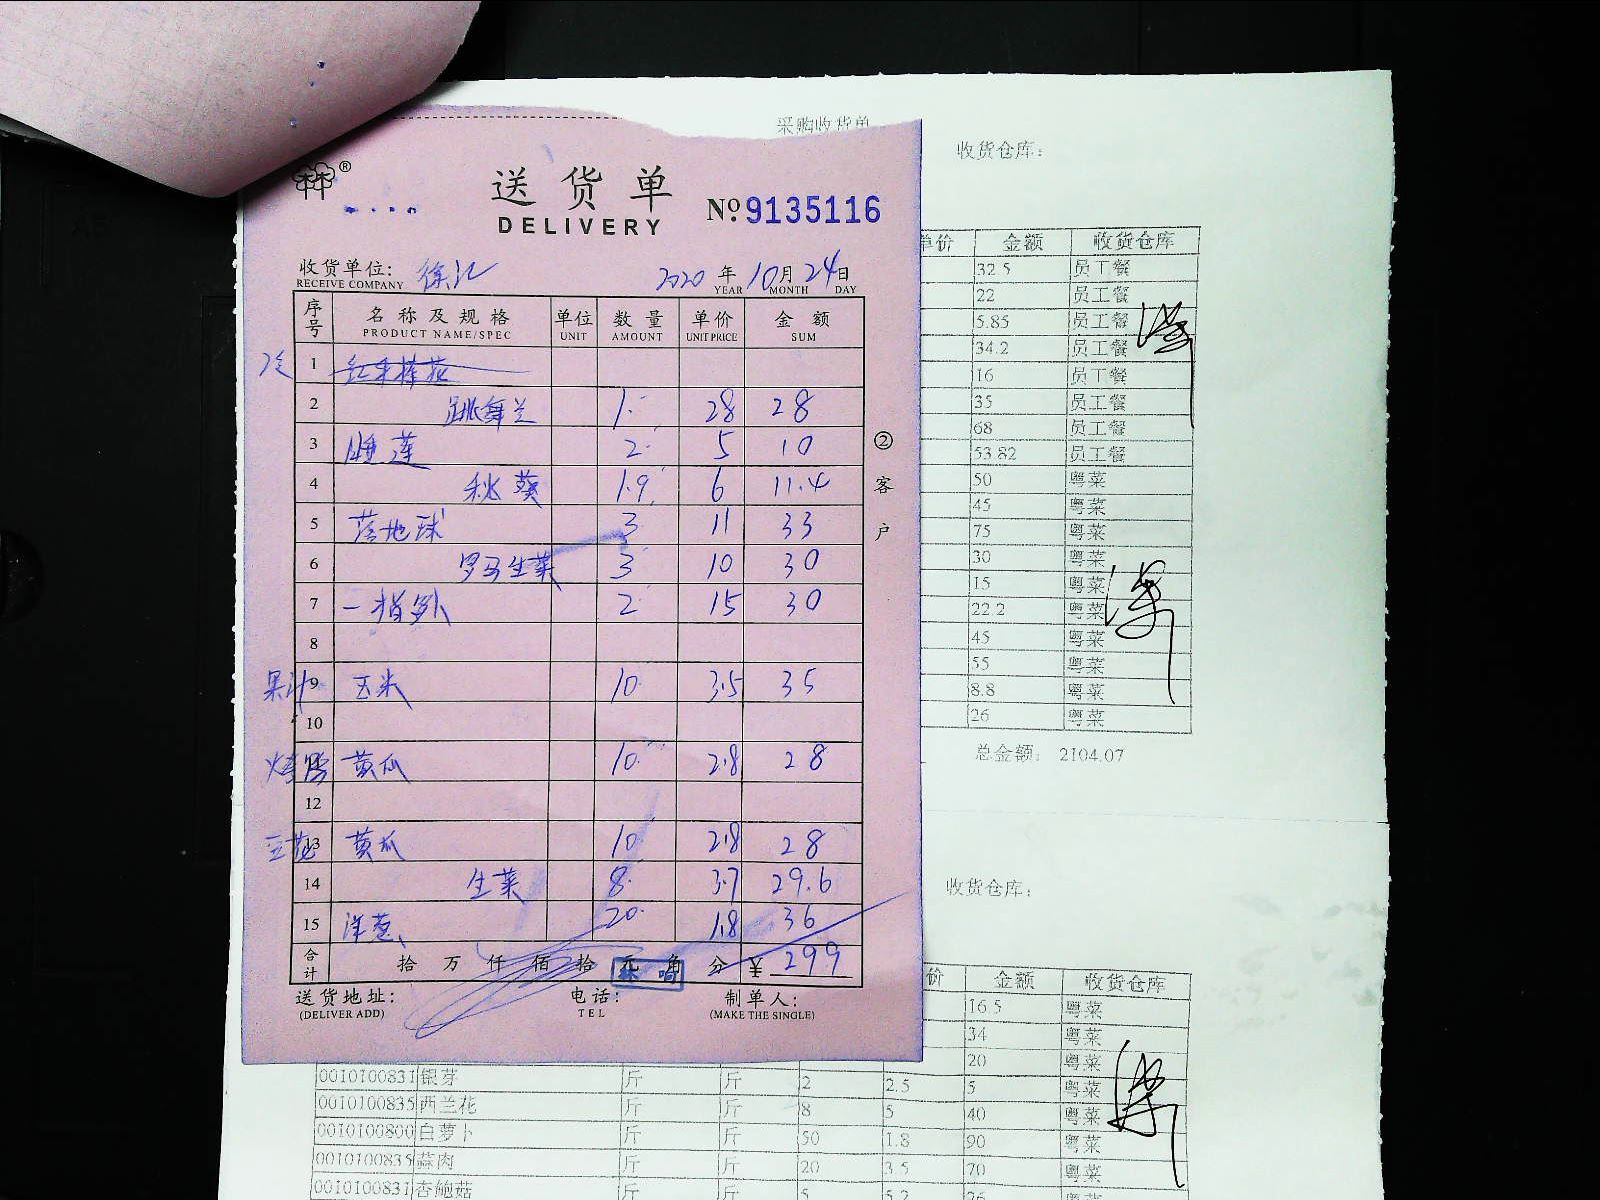 采购收货单
收货仓库:
®
送货单
DELIVERY
№ 9135116
收货单位: 徐汇
RECEIVE COMPANY
2020 年 10 月 24 日
YEAR MONTH DAY
序号 名称及规格 单位 数量 单价 金额
PRODUCT NAME/SPEC UNIT AMOUNT UNIT PRICE SUM
1
2 跳舞兰 1 28 28
3 睡莲 2 5 10
4 秋葵 1.9 6 11.4
5 落地球 3 11 33
6 罗马生菜 3 10 30
7 2 15 30
8
果汁 9 玉米 10 3.5 35
10
黄瓜 10 2.8 28
12
豆花 13 黄瓜 10 2.8 28
14 生菜 8 3.7 29.6
15 洋葱 20 1.8 36
合计 拾 万 仟 佰 拾 元 角 分 ¥ 299
送货地址: 电话: 制单人:
(DELIVER ADD) TEL (MAKE THE SINGLE)
②客户
单价 金额 收货仓库
32.5 员工餐
22 员工餐
5.85 员工餐
34.2 员工餐
16 员工餐
35 员工餐
68 员工餐
53.82 员工餐
50 粤菜
45 粤菜
75 粤菜
30 粤菜
15 粤菜
22.2 粤菜
45 粤菜
55 粤菜
8.8 粤菜
26 粤菜
总金额: 2104.07
收货仓库:
价 金额 收货仓库
16.5 粤菜
34 粤菜
20 粤菜
0010100831 银芽 斤 斤 2 2.5 5 粤菜
0010100835 西兰花 斤 斤 8 5 40 粤菜
0010100800 白萝卜 斤 斤 50 1.8 90 粤菜
0010100835 蒜肉 斤 斤 20 3.5 70 粤菜
0010100831 杏鲍菇 斤 斤 5 5.2 26 粤菜